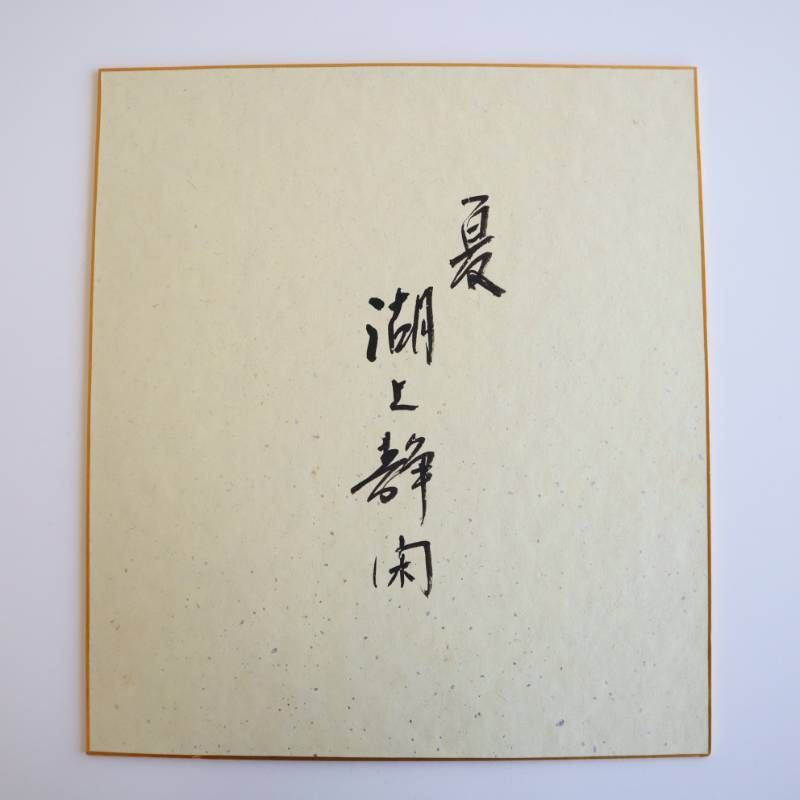 夏
湖上静閑